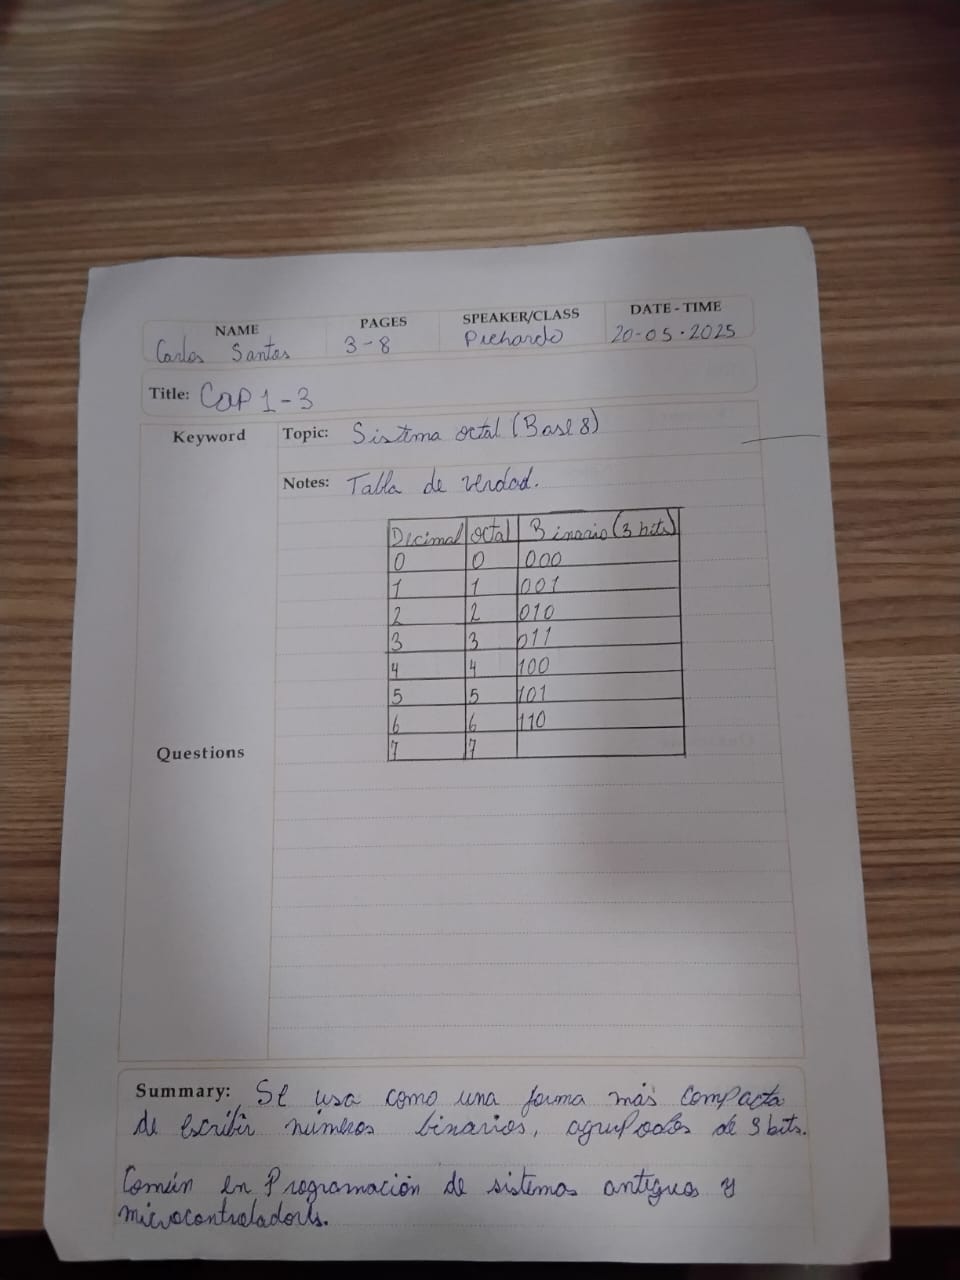 NAME PAGES SPEAKER/CLASS DATE - TIME
Carlos Santos 3-8 Pichardo 20-05-2025
Title: Cap 1-3
Keyword Topic: Sistema octal (Base 8)
Notes: Tabla de verdad.
Decimal octal Binario (3 bits)
0 0 000
1 1 001
2 2 010
3 3 011
4 4 100
5 5 101
6 6 110
7 7
Questions
Summary: Se usa como una forma más compacta
de escribir números binarios, agrupados de 3 bits.
Común en Programación de sistemas antiguos y
microcontroladores.